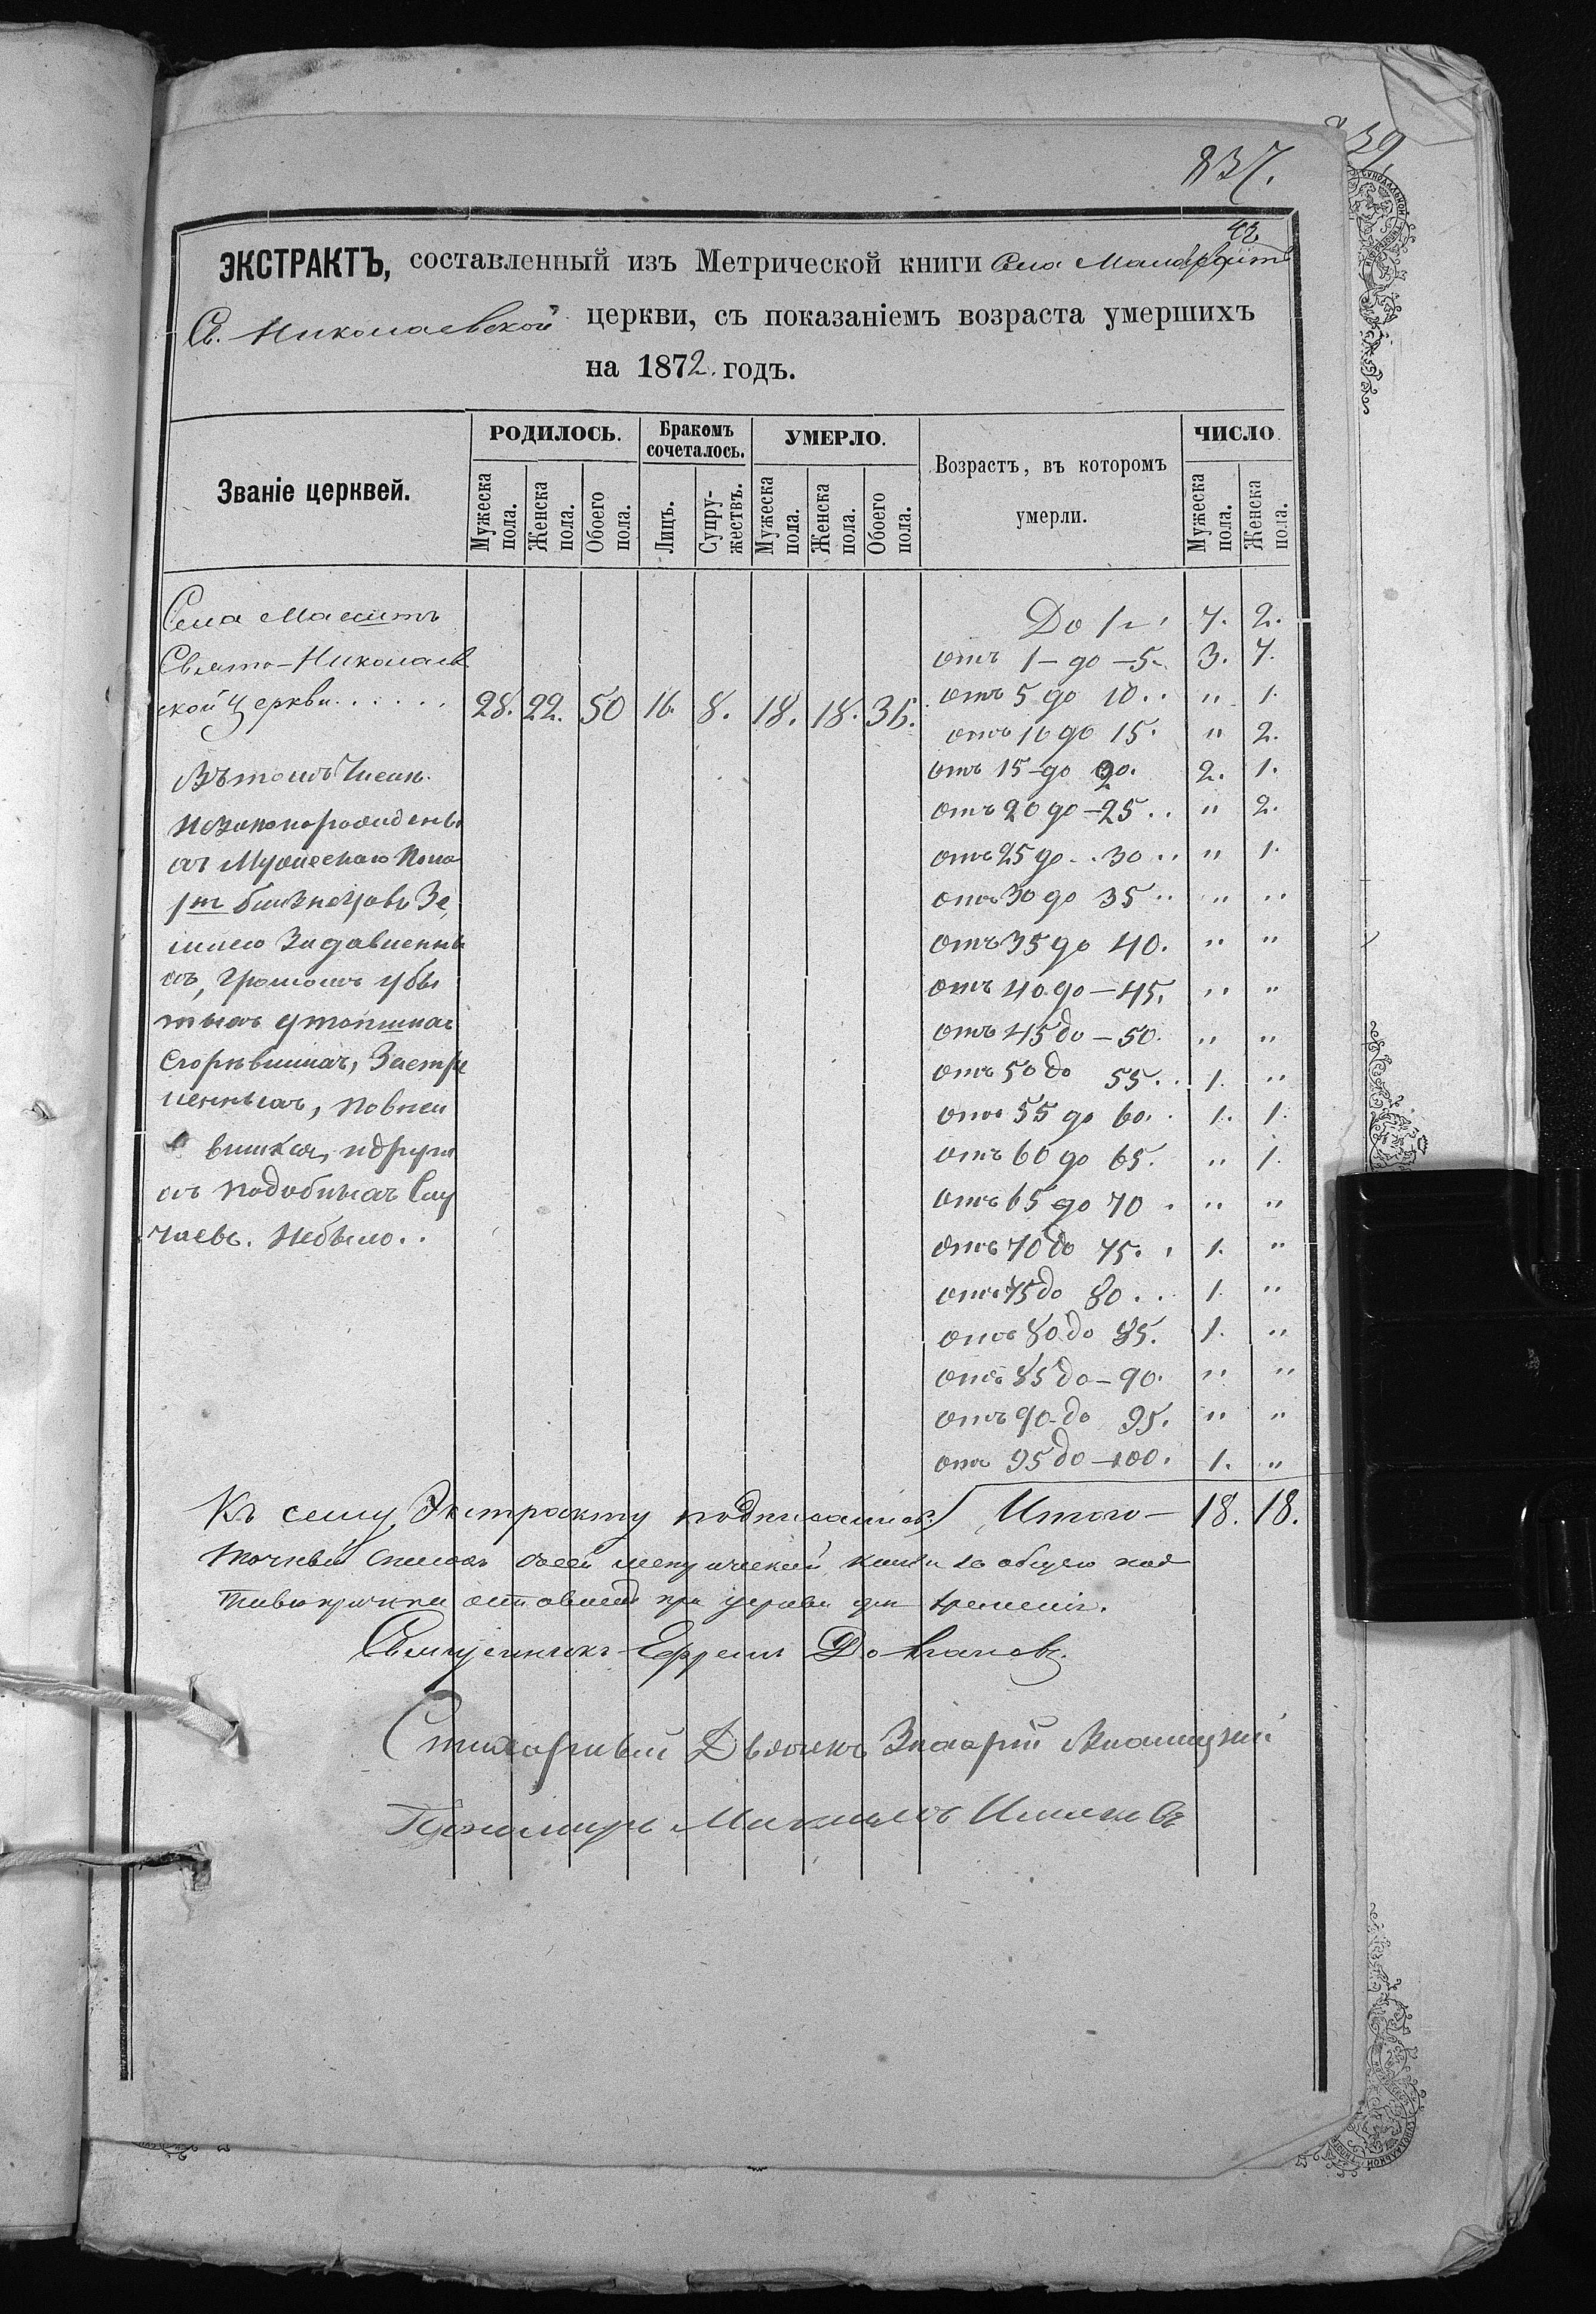 39
237.
42
ЭКСТРАКТЪ, составленный изъ Метрической книги Села
Св. Николаевской церкви, съ показаніемъ возраста умершихъ
на 1872. годъ.
Званіе церквей.
РОДИЛОСЬ.
Бракомъ сочеталось.
УМЕРЛО.
Возрастъ, въ которомъ умерли.
ЧИСЛО.
Мужеска пола.
Женска пола.
Обоего пола.
Лицъ.
Супружествъ.
Мужеска пола.
Женска пола.
Обоего пола.
Мужеска пола.
Женска пола.
Села
Свято-Николаев
ской Церкви...... 28. 22. 50 16. 8. 18. 18. 36.
Въ томъ Числѣ.
незаконорожденны
хъ Мужескаго Пола
1го близнецовъ Зе,
млею Задавленны
хъ, громомъ убы
тыхъ утопшихъ
Сгорѣвшихъ, Застре
ленныхъ, повѣси
вшихся, идругих
ъ подобныхъ Слу
чаевъ. Небыло..
До 1 7. 2.
отъ 1 - до - 5. 3. 7.
отъ 5 до 10.. " 1.
отъ 10 до 15. " 2.
отъ 15 - до 20. 2. 1.
отъ 20 до - 25.. " 2.
отъ 25 до.. 30.. " 1.
отъ 30 до 35.. " "
отъ 35 до 40. " "
отъ 40 до - 45. " "
отъ 45 до - 50. " "
отъ 50 до 55.. 1. "
отъ 55 до 60.. 1. 1.
отъ 60 до 65. " 1.
отъ 65 до 70. " "
отъ 70 до 75.. 1. "
отъ 75 до 80.. 1. "
отъ 80 до 85. 1. "
отъ 85 до - 90. " "
отъ 90 - до 95. " "
отъ 95 до - 100. 1. "
Итого - 18. 18.
Къ сему Экстракту подписались:
Точный Списокъ сей книги
при церкви
Священникъ Ефремъ
Стихарный Дьячекъ
Пономарь Михаилъ